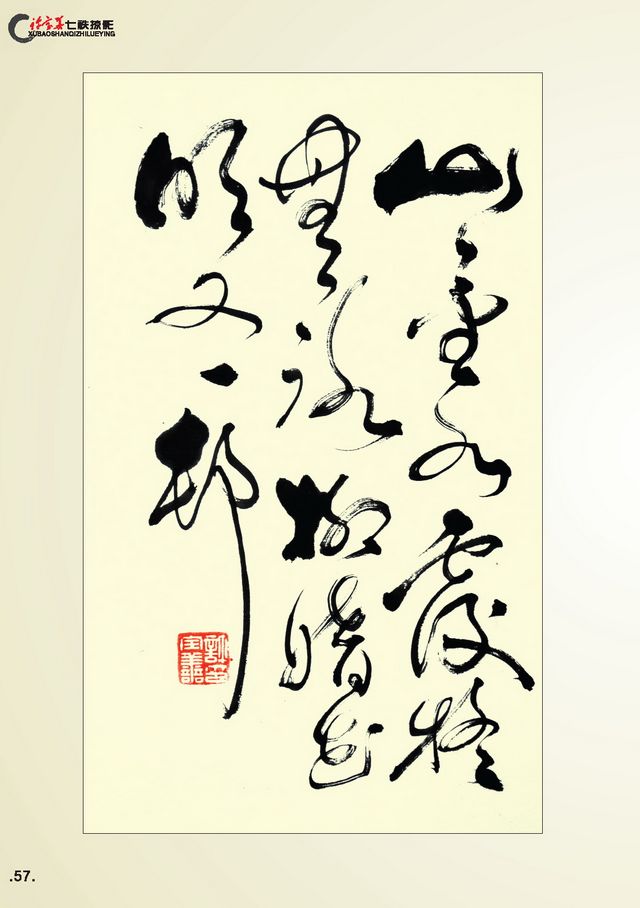 许宝善七秩掠影
XUBAOSHANQIZHILUEYING
山重水覆疑
無路柳暗花
明又一邨
.57.